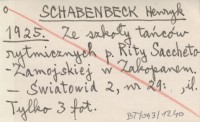 SCHABENBECK Henryk
1925. Ze szkoły tańców
rytmicznych p. Rity Saccheto
-Zamojskiej w Zakopanem.
— Światowid 2, nr 29: il.
Tylko 3 fot.
BT/043/1240